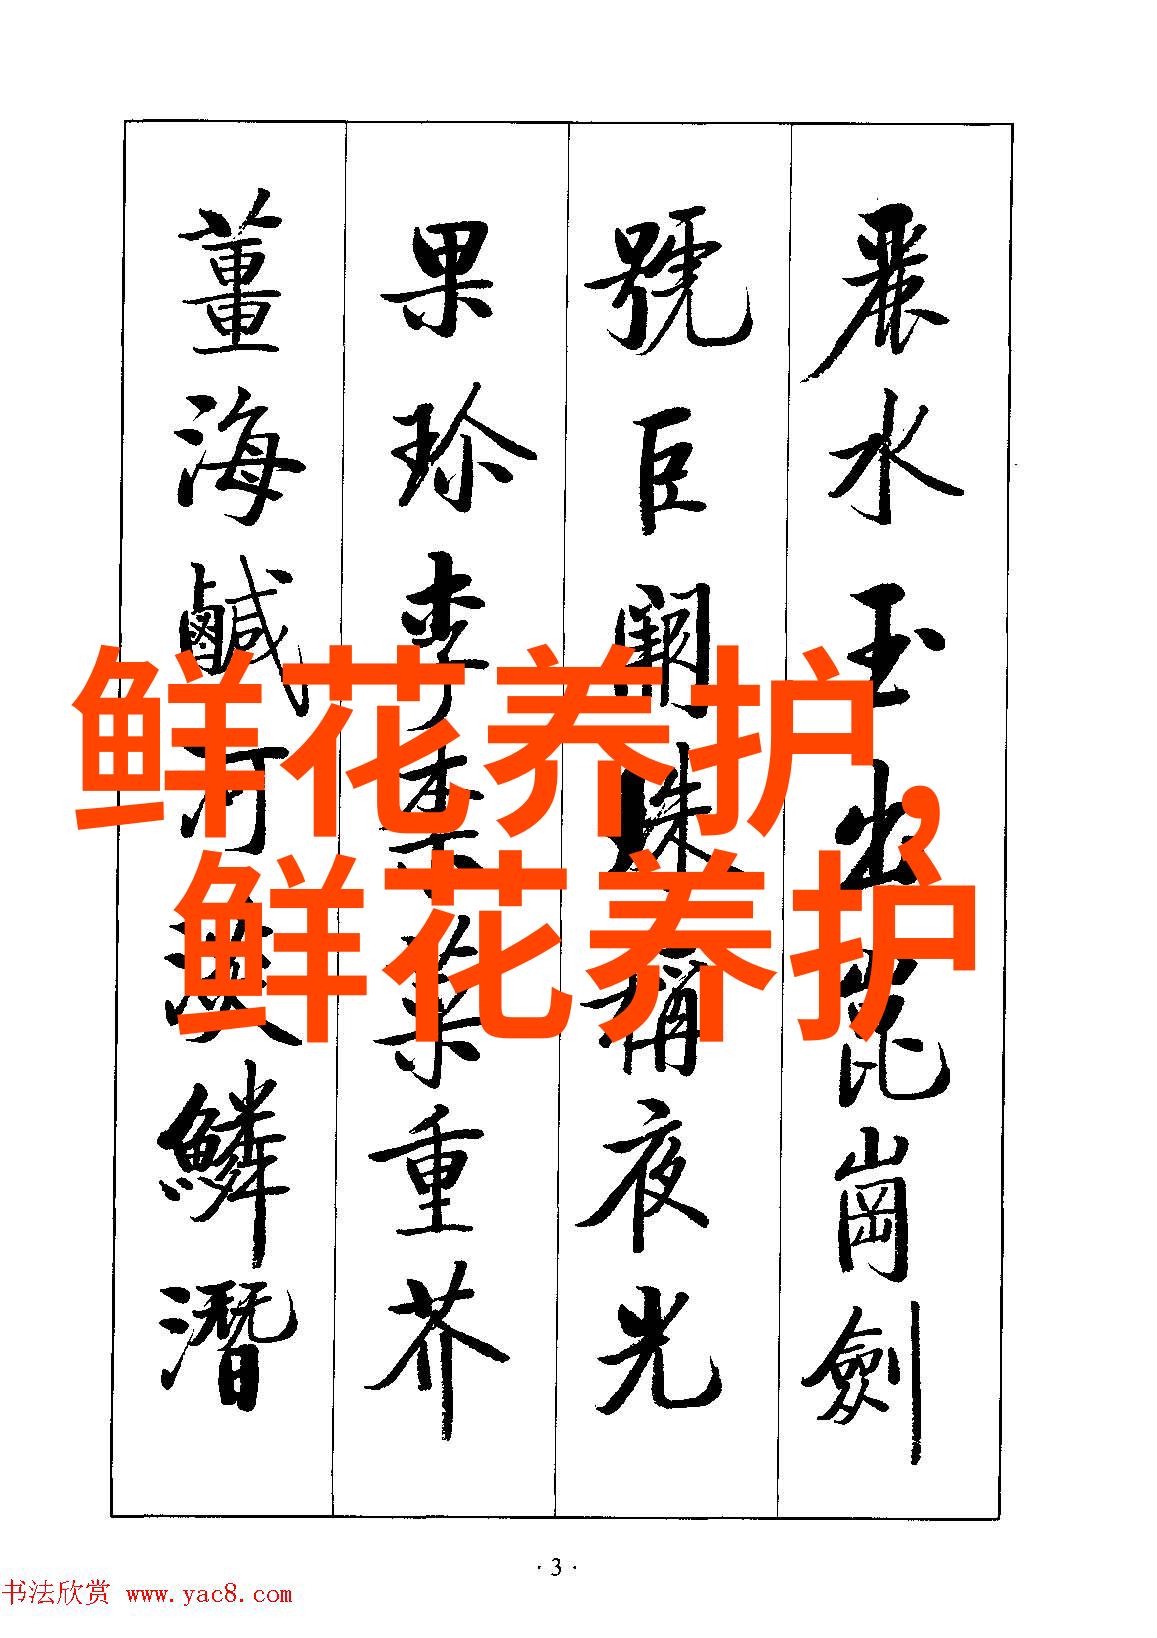 麗水玉出崑崗劍
號巨闕珠稱夜光
果珍李柰菜重芥
薑海鹹河淡鱗潛
鲜花养护,
鲜花养护
·3·
书法欣赏 www.yac8.com